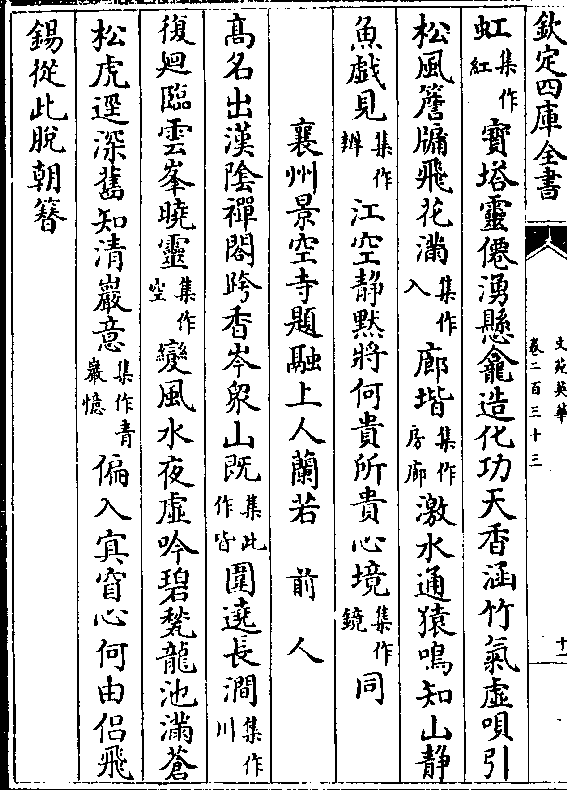 欽定四庫全書
文苑英華
卷二百三十三
十一
虹集作紅寳塔靈僊湧懸龕造化功天香涵竹氣虛唄引
松風簷牖飛花滿集作入廊堦集作房廊激水通猿鳴知山静
魚戲見集作辨江空静黙將何貴所貴心境集作鏡同
襄州景空寺題融上人蘭若 前人
髙名出漢陰禪閣跨香岑衆山既集此作皆圍遶長澗集作川
復迴臨雲峯曉靈集作空變風水夜虛吟碧甃龍池滿蒼
松虎逕深舊知清巖意集作青巖憶偏入寘窅心何由侣飛
錫從此脫朝簪